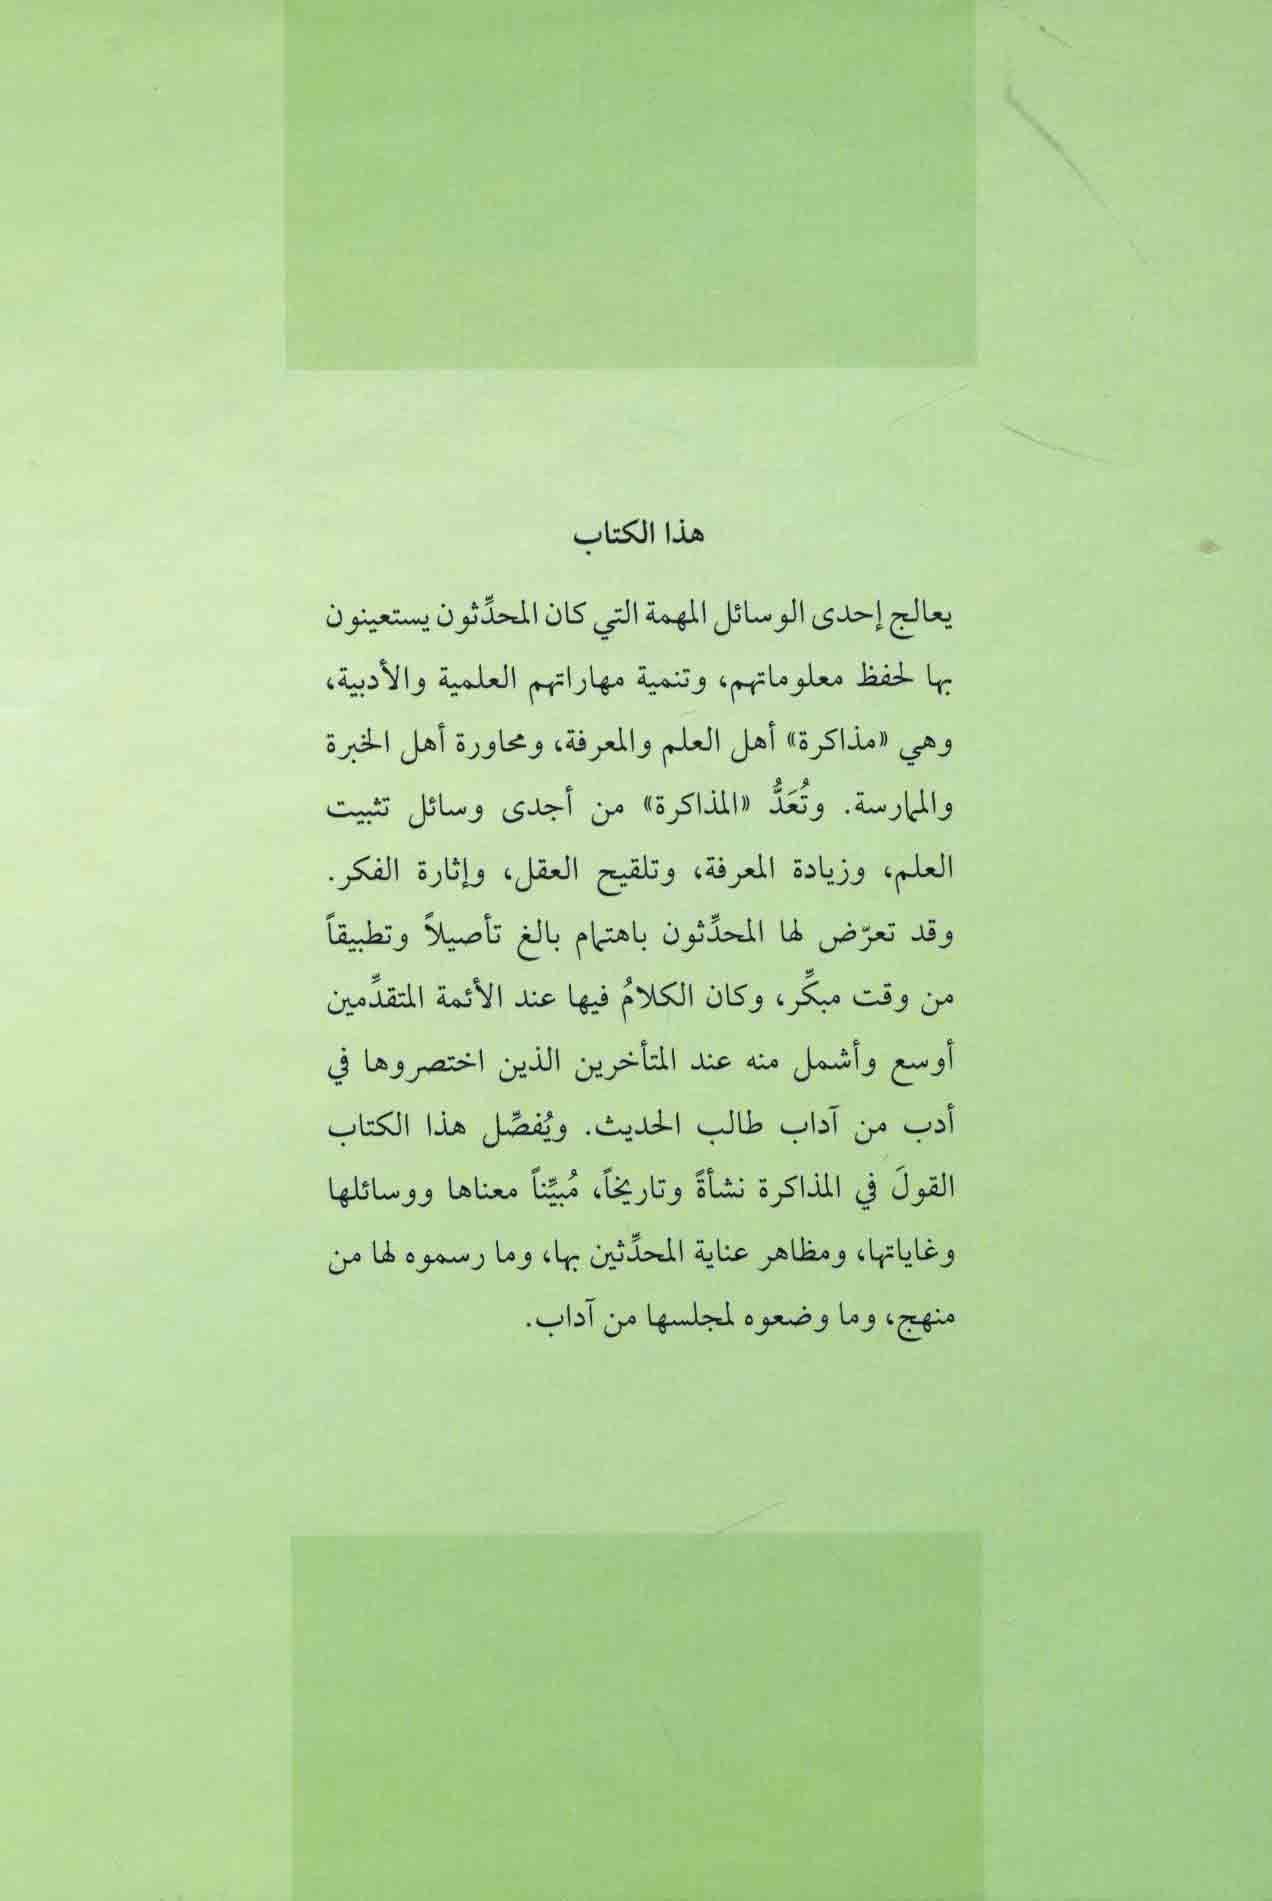 هذا الكتاب
يعالج إحدى الوسائل المهمة التي كان المحدِّثون يستعينون
بها لحفظ معلوماتهم، وتنمية مهاراتهم العلمية والأدبية،
وهي «مذاكرة» أهل العلم والمعرفة، ومحاورة أهل الخبرة
والممارسة. وتُعَدُّ «المذاكرة» من أجدى وسائل تثبيت
العلم، وزيادة المعرفة، وتلقيح العقل، وإثارة الفكر.
وقد تعرّض لها المحدِّثون باهتمام بالغ تأصيلاً وتطبيقاً
من وقت مبكِّر، وكان الكلامُ فيها عند الأئمة المتقدِّمين
أوسع وأشمل منه عند المتأخرين الذين اختصروها في
أدب من آداب طالب الحديث. ويُفصِّل هذا الكتاب
القولَ في المذاكرة نشأةً وتاريخاً، مُبيِّناً معناها ووسائلها
وغاياتها، ومظاهر عناية المحدِّثين بها، وما رسموه لها من
منهج، وما وضعوه لمجلسها من آداب.